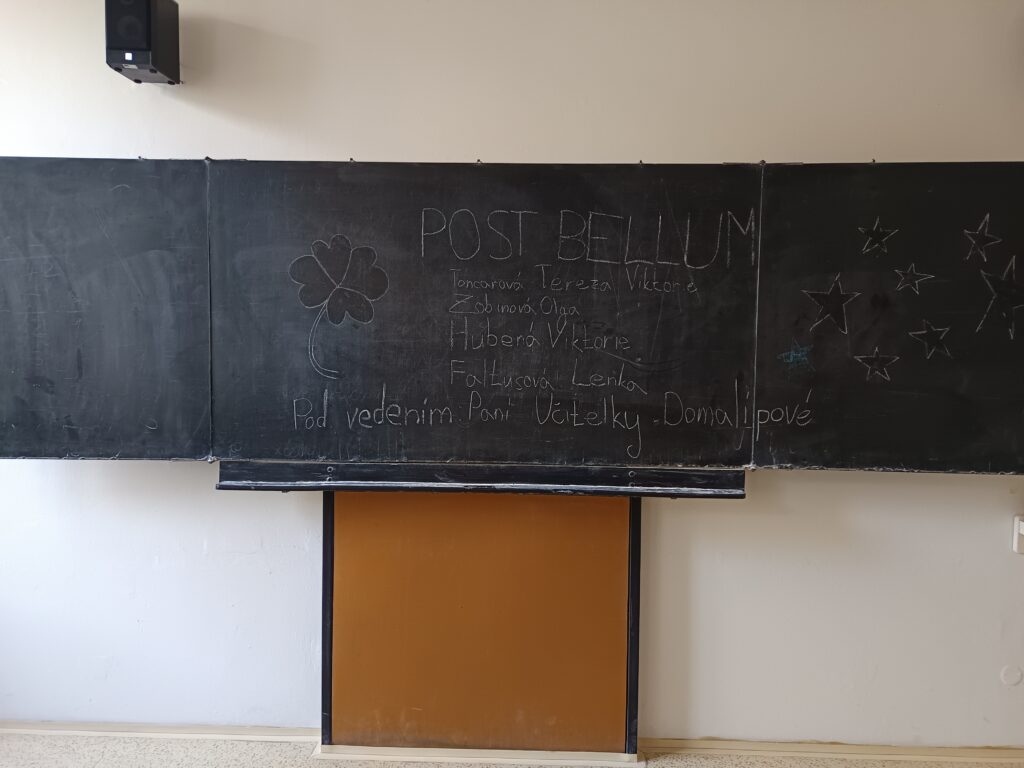 POST BELLUM
Toncarová Tereza Viktorie
Zobinová Olga
Hubená Viktorie
Faltusová Lenka
Pod vedením Paní Učitelky Domaljpové